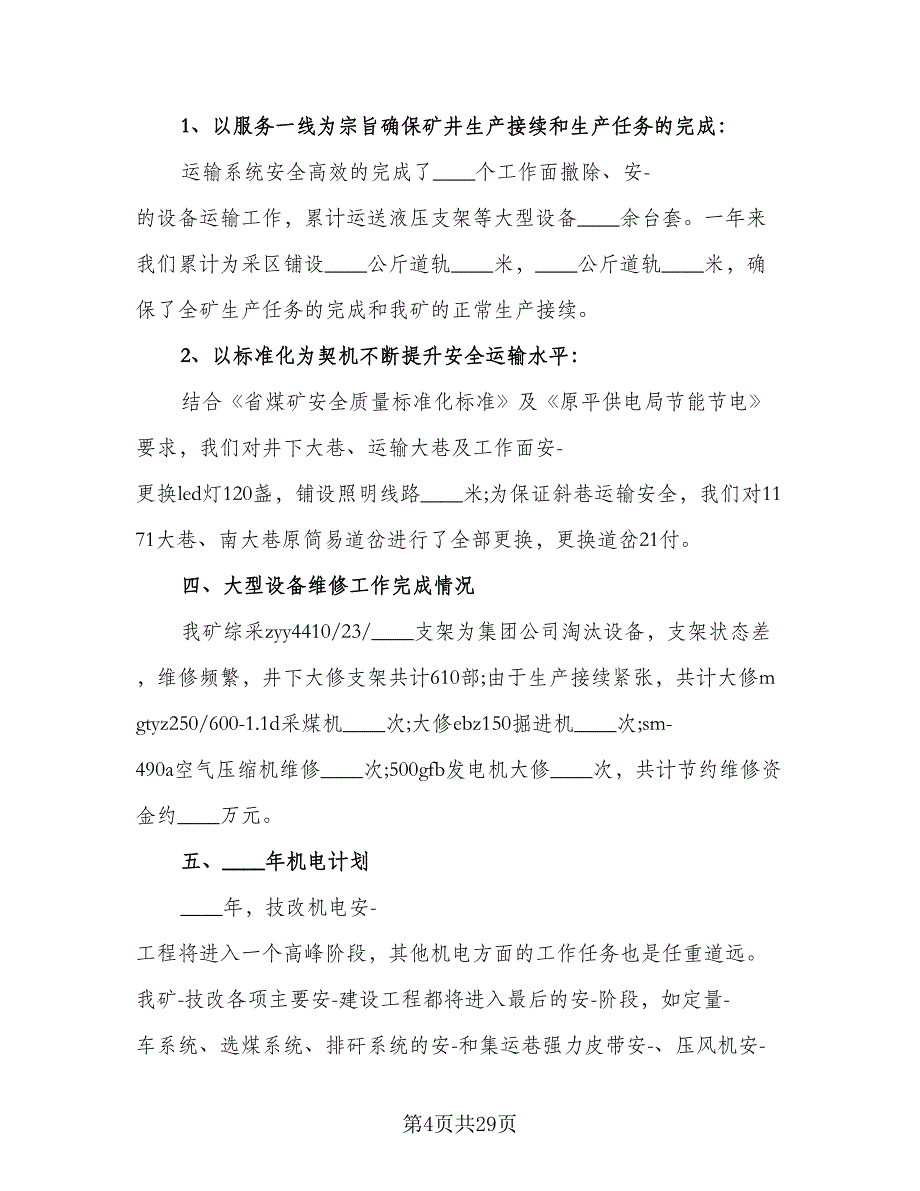 1、以服务一线为宗旨确保矿井生产接续和生产任务的完成：
运输系统安全高效的完成了____个工作面撤除、安-
的设备运输工作，累计运送液压支架等大型设备____余台套。一年来
我们累计为采区铺设____公斤道轨____米，____公斤道轨____米，确
保了全矿生产任务的完成和我矿的正常生产接续。
2、以标准化为契机不断提升安全运输水平：
结合《省煤矿安全质量标准化标准》及《原平供电局节能节电》
要求，我们对井下大巷、运输大巷及工作面安-
更换led灯120盏，铺设照明线路____米;为保证斜巷运输安全，我们对11
71大巷、南大巷原简易道岔进行了全部更换，更换道岔21付。
四、大型设备维修工作完成情况
我矿综采zyy4410/23/____支架为集团公司淘汰设备，支架状态差
，维修频繁，井下大修支架共计610部;由于生产接续紧张，共计大修m
gtyz250/600-1.1d采煤机____次;大修ebz150掘进机____次;sm-
490a空气压缩机维修____次;500gfb发电机大修____次，共计节约维修资
金约____万元。
五、____年机电计划
____年，技改机电安-
工程将进入一个高峰阶段，其他机电方面的工作任务也是任重道远。
我矿-技改各项主要安-建设工程都将进入最后的安-阶段，如定量-
车系统、选煤系统、排矸系统的安-和集运巷强力皮带安-、压风机安-
第4页共29页